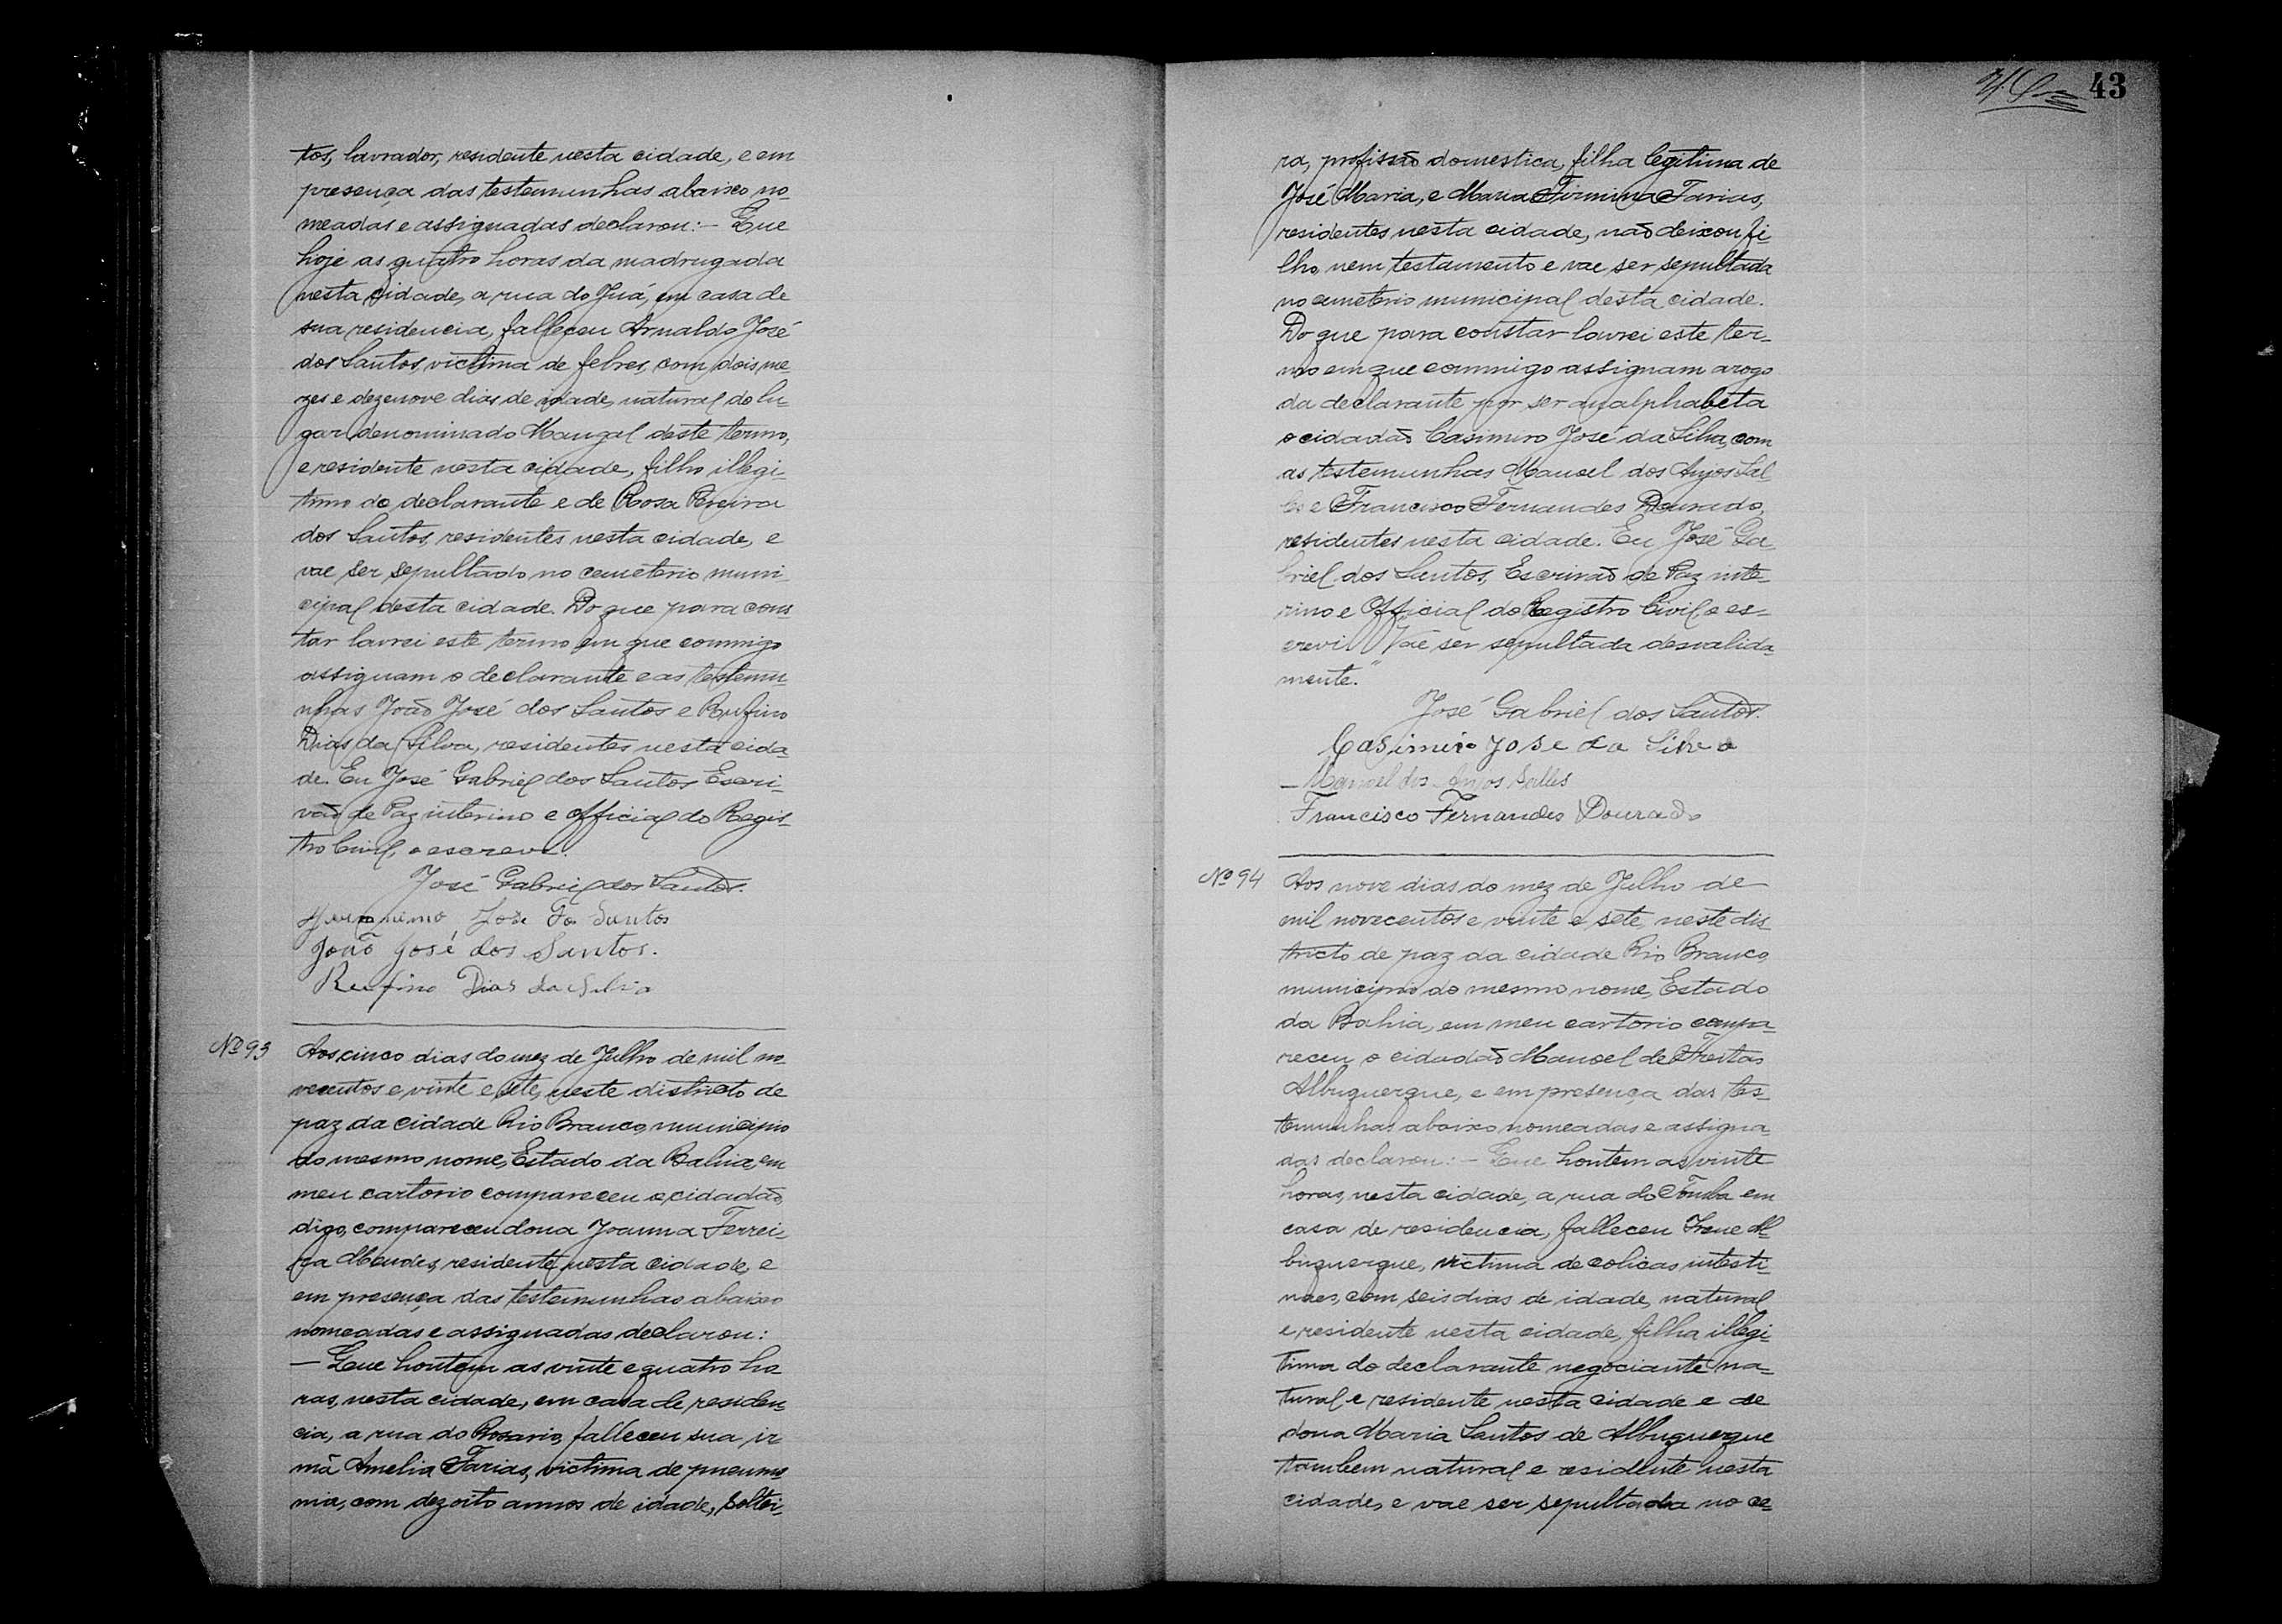 tos, lavrador, residente nesta cidade, e em
presença das testemunhas abaixo no-
meadas e assignadas declarou:- Que
hoje as quatro horas da madrugada
nesta cidade, a rua do Juá, em casa de
sua residencia, falleceu Arnaldo José
dos Santos, victima de febres, com dois me-
zes e dezenove dias de idade, natural do lu-
gar denominado Mangal deste termo,
e residente nesta cidade, filho illegi-
timo do declarante e de Rosa Pereira
dos Santos, residentes nesta cidade, e
vae ser sepultado no cemeterio muni-
cipal desta cidade. Do que para cons-
tar lavrei este termo em que commigo
assignam o declarante e as testemu-
nhas João José dos Santos e Rufino
Dias da Silva, residentes nesta cida-
de. Eu José Gabriel dos Santos Escri-
vão de Paz interino e Official do Regis-
tro Civil, o escrevi.
José Gabriel dos Santos.
José dos Santos
João José dos Santos.
Rufino Dias da Silva
Nº 93
Aos cinco dias do mez de Julho de mil no-
vecentos e vinte e sete, neste districto de
paz da cidade Rio Branco, municipio
do mesmo nome, Estado da Bahia, em
meu cartorio compareceu o cidadão,
digo, compareceu dona Joanna Ferrei-
ra Mendes, residente nesta cidade, e
em presença das testemunhas abaixo
nomeadas e assignadas declarou:
- Que hontem as vinte e quatro ho-
ras, nesta cidade, em casa de residen-
cia, a rua do Rosario, falleceu sua ir-
mã Amelia Farias, victima de pneumo-
nia, com dezoito annos de idade, soltei-
43
ra, profissão domestica, filha legitima de
José Maria, e Maria Firmina Farias,
residentes nesta cidade, não deixou fi-
lho, nem testamento e vae ser sepultada
no cemeterio municipal desta cidade.
Do que para constar lavrei este ter-
mo em que commigo assignam a rogo
da declarante por ser analphabeta
o cidadão Casimiro José da Silva, com
as testemunhas Manoel dos Anjos Sal-
les e Francisco Fernandes Dourado,
residentes nesta cidade. Eu José Ga-
briel dos Santos, Escrivão de Paz inte-
rino e Official do Registro Civil, o es-
crevi. Vae ser sepultada desvalida-
mente."
José Gabriel dos Santos.
Casimiro José da Silva
Manoel dos Anjos Salles
Francisco Fernandes Dourado
Nº 94
Aos nove dias do mez de Julho de
mil novecentos e vinte e sete, neste dis-
tricto de paz da cidade Rio Branco,
municipio do mesmo nome, Estado
da Bahia, em meu cartorio compa-
receu o cidadão Manoel de Freitas
Albuquerque, e em presença das tes-
temunhas abaixo nomeadas e assigna-
das declarou:- Que hontem as vinte
horas, nesta cidade, a rua do Tomba em
casa de residencia, falleceu Irene Al-
buquerque, victima de colicas intesti-
naes, com seis dias de idade, natural
e residente nesta cidade, filha illegi-
tima do declarante negociante na-
tural e residente nesta cidade e de
dona Maria Santos de Albuquerque
tambem natural e residente nesta
cidade, e vae ser sepultada no ce-